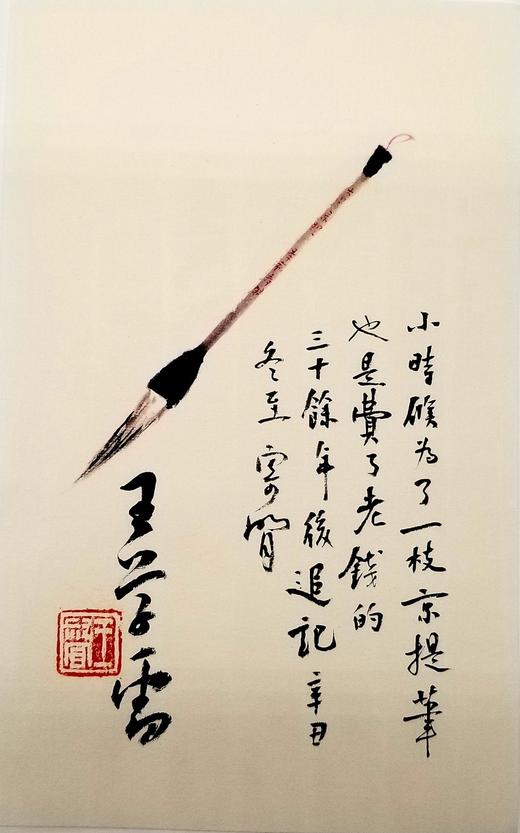 小時候為了一枝京提筆
也是費了老錢的
三十餘年後追記 辛丑
冬至 寄閒
王学雷